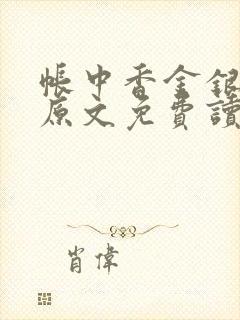 帳中香金銀
原文免費讀
肖偉